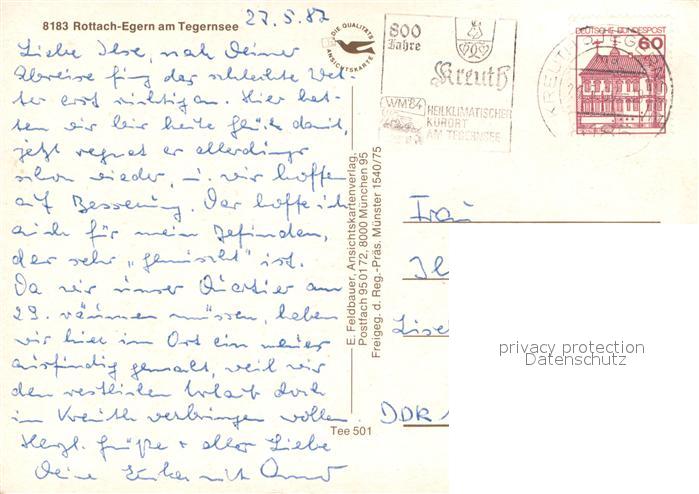 8183 Rottach-Egern am Tegernsee
27.5.87
Liebe Ilse, nach Deiner
Abreise fing das schlechte Wet-
ter erst richtig an. Hier hat-
ten wir bis heute Glück damit,
jetzt regnet es allerdings
schon wieder, u. wir hoffen
auf Besserung. Das hoffe ich
auch für mein Befinden,
das sehr "gemischt" ist.
Da wir unser Quartier am
29. räumen müssen, haben
wir hier im Ort ein neues
ausfindig gemacht, weil wir
den restlichen Urlaub doch
in Kreuth verbringen wollen.
Herzl. Grüße + alles Liebe
Deine
DIE QUALITÄTS
ANSICHTSKARTE
E. Feldbauer, Ansichtskartenverlag,
Postfach 95 01 72, 8000 München 95
Freigeg. d. Reg.-Präs. Münster 1540/75
Tee 501
800
Jahre
Kreuth
WM'84
HEILKLIMATISCHER
KURORT
AM TEGERNSEE
DEUTSCHE BUNDESPOST
60
Frau
DDR
privacy protection
Datenschutz